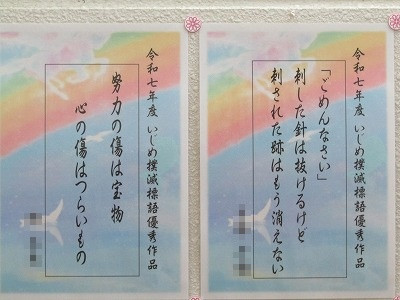 令和七年度 いじめ撲滅標語優秀作品
「ごめんなさい」
刺した針は抜けるけど
刺された跡はもう消えない
令和七年度 いじめ撲滅標語優秀作品
努力の傷は宝物
心の傷はつらいもの